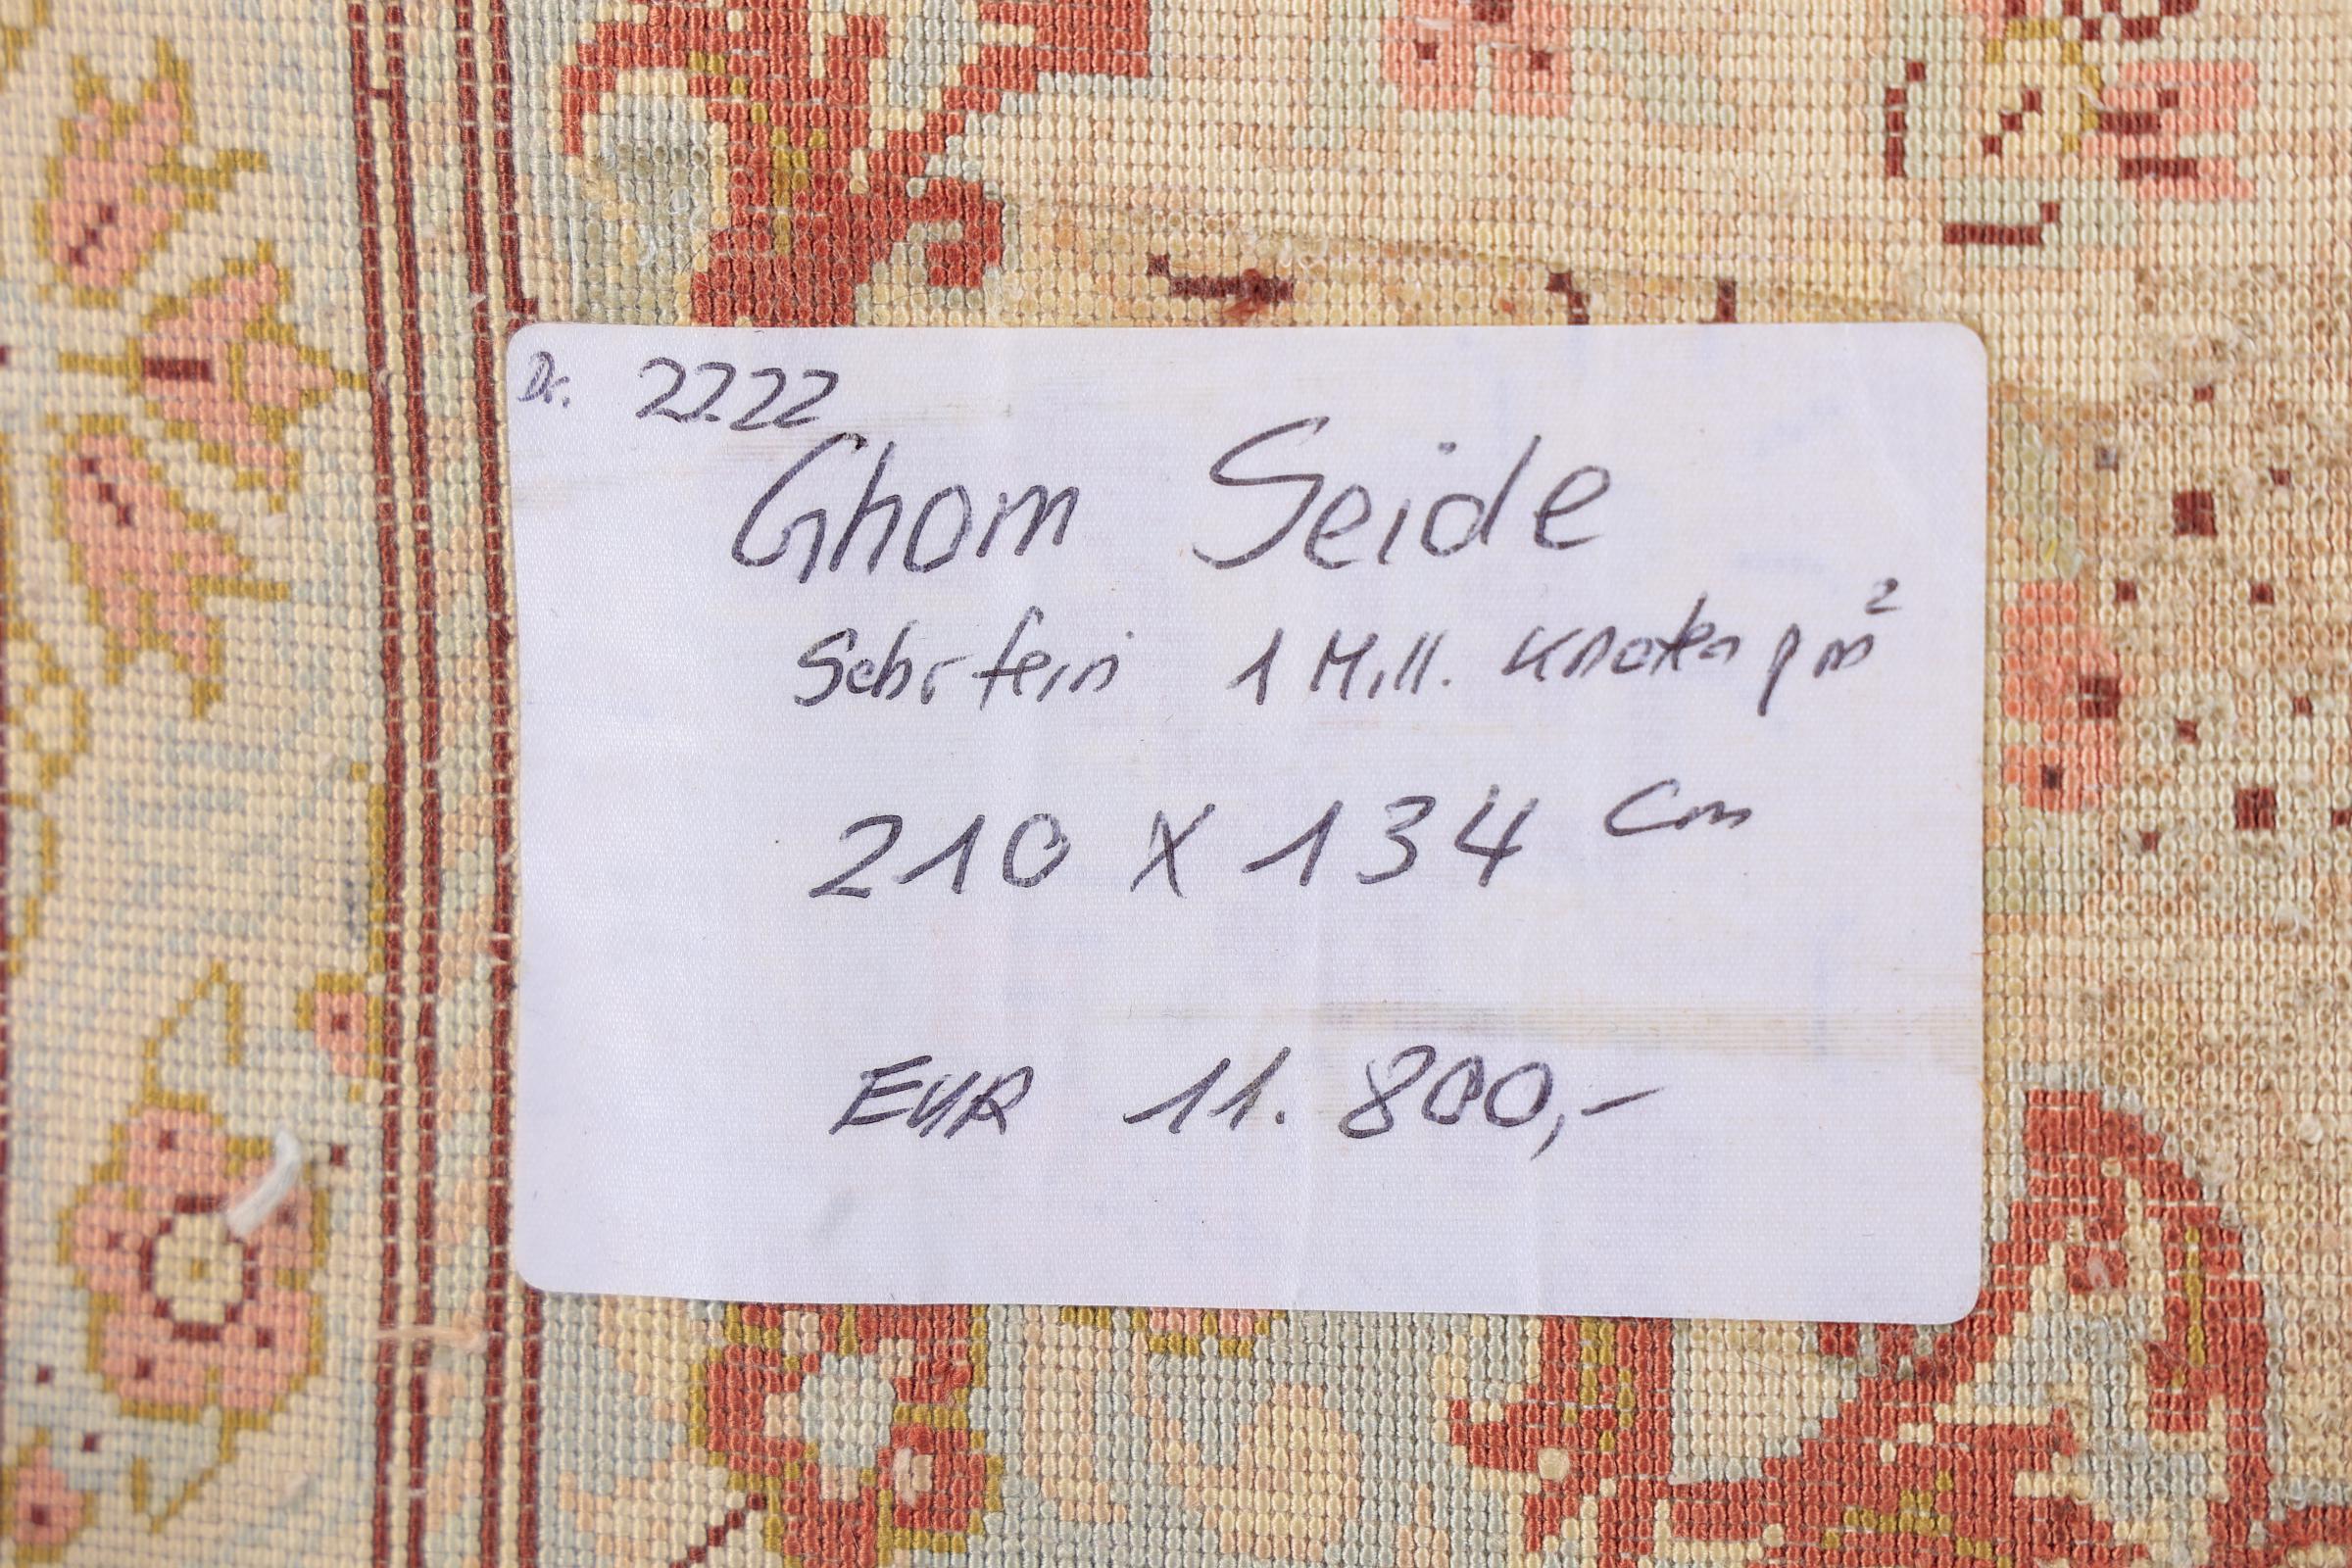 Dr. 2222
Ghom Seide
Sehr fein 1 Mill. Knoten p m²
210 x 134 cm
EUR 11.800,-